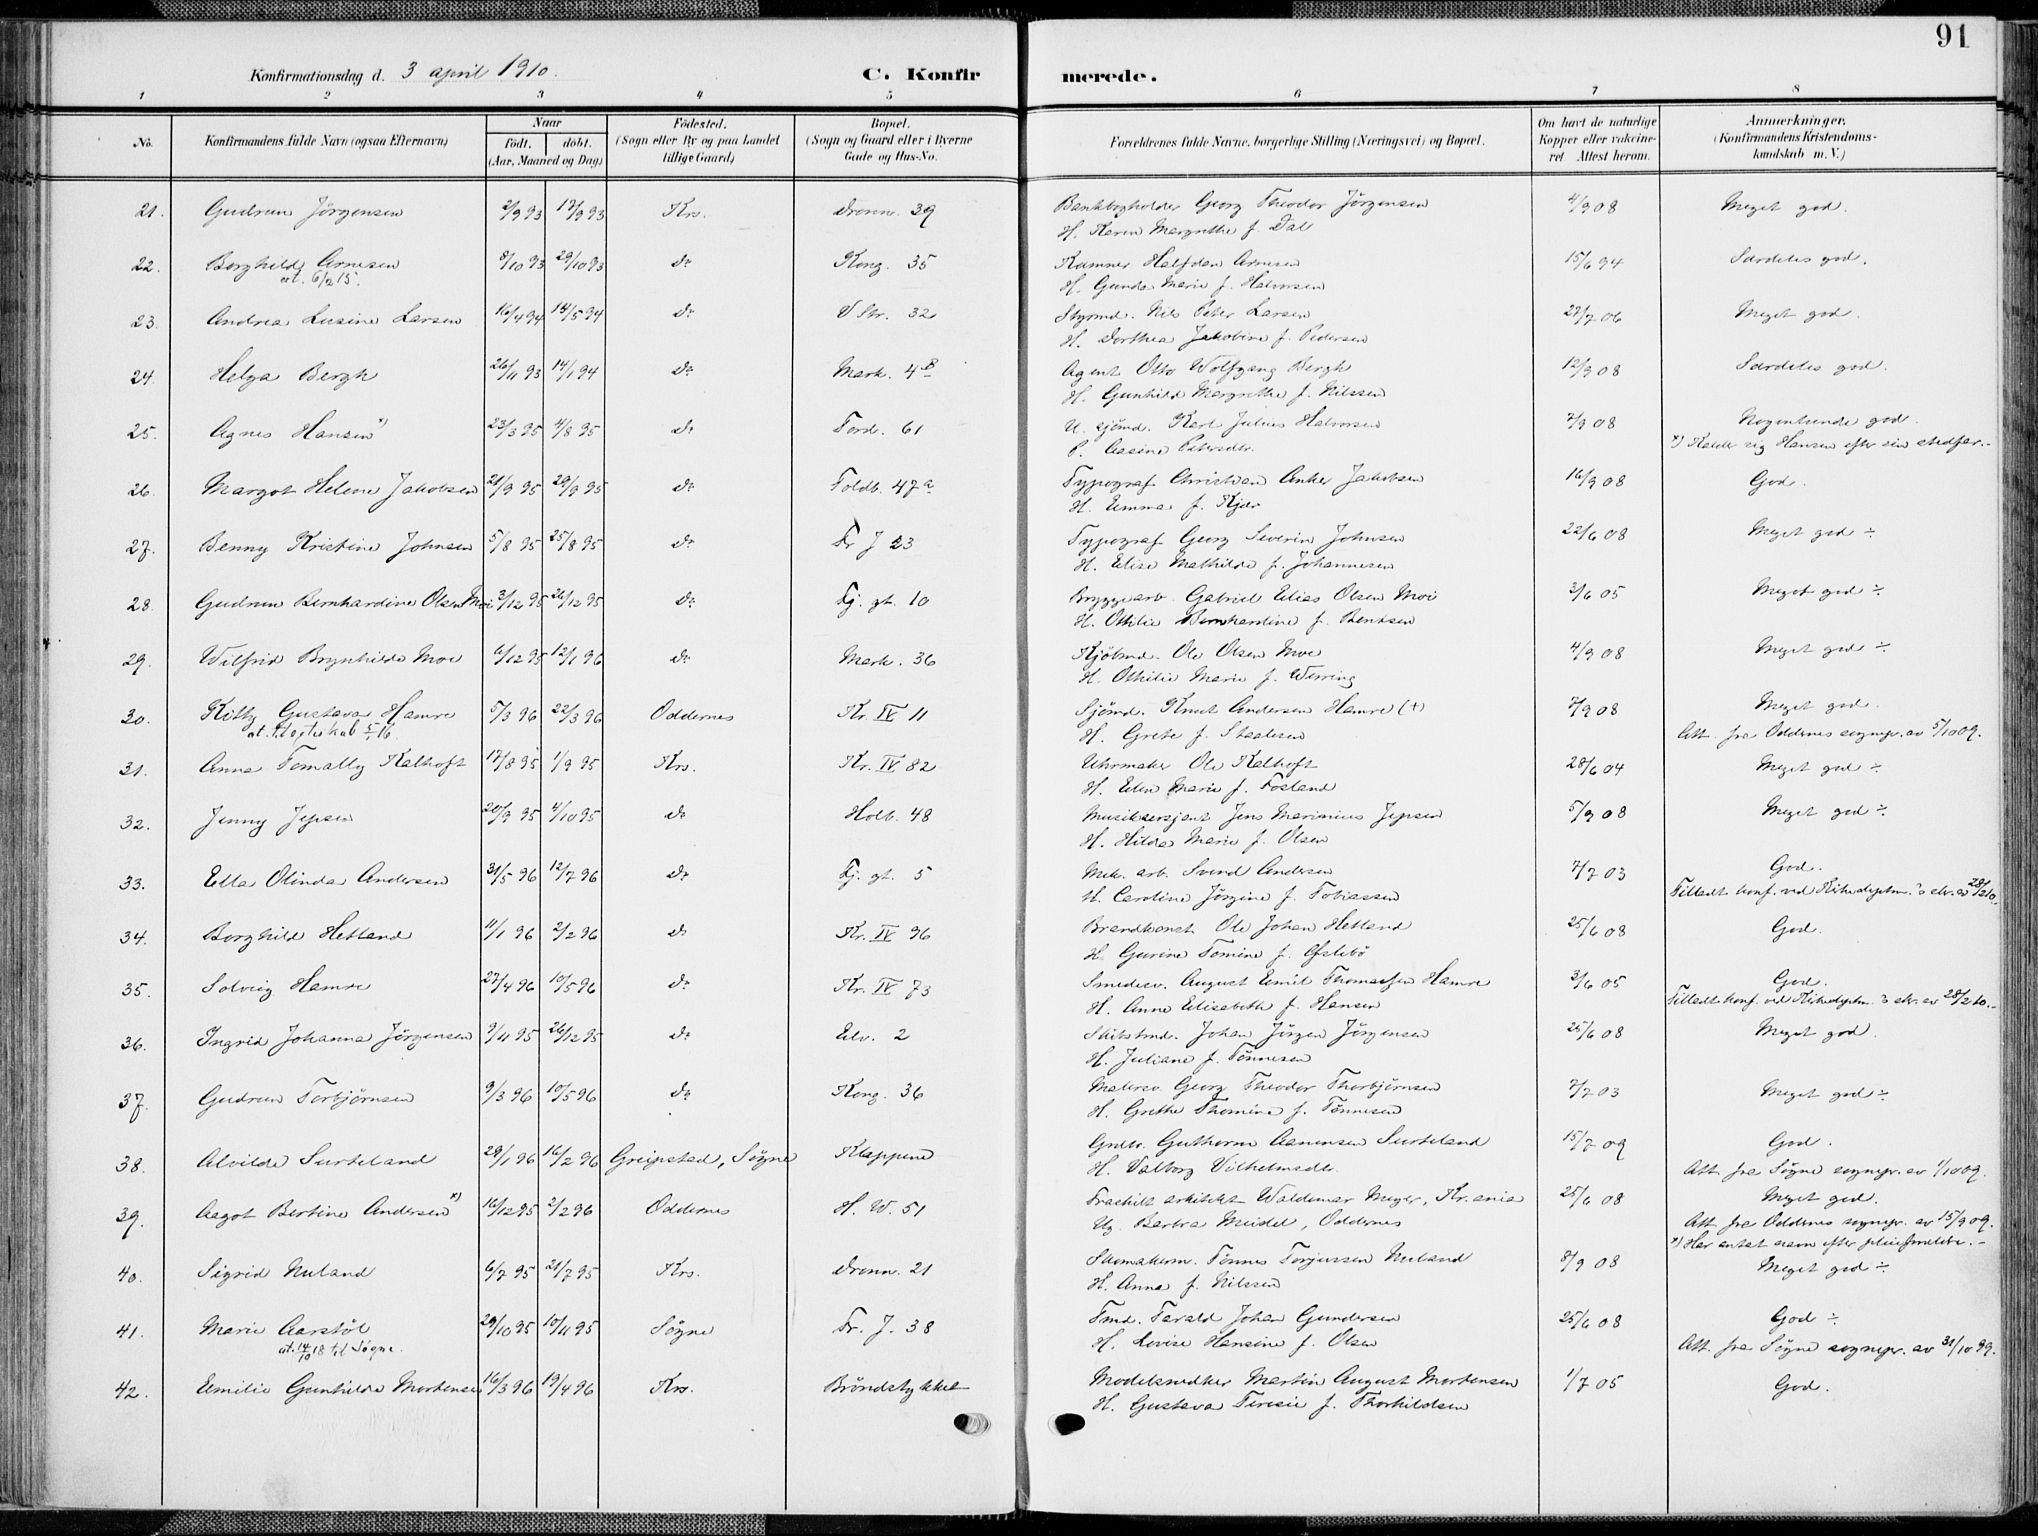 91
Konfirmationsdag d. 3 april 1910.
C. Konfirmerede.
1 2 3 4 5 6 7 8
No.
Konfirmandens fulde Navn (ogsaa Efternavn)
Naar
født. døbt.
(Aar, Maaned og Dag)
Fødested.
(Sogn eller By og paa Landet
tillige Gaard)
Bopæl.
(Sogn og Gaard eller i Byerne
Gade og Hus-No.
Forældrenes fulde Navne, borgerlige Stilling (Næringsvei) og Bopæl.
Om havt de naturlige
Kopper eller vakcine-
ret. Attest herom.
Anmærkninger.
(Konfirmandens Kristendoms-
kundskab m. V.)
21. Gudrun Jörgensen 2/9 93 17/9 93 Krs. Dronn. 39 Bankbogholder Georg Theodor Jörgensen 4/9 08 Meget god.
H. Karen Margrethe f. Dal
22. Borghild Arnesen 8/10 93 29/10 93 do Kong. 35 Kæmner Halfdan Arnesen 15/6 94 Særdeles god.
at. 6/2 15. H. Gunda Marie f. Halvorsen
23. Andrea Lusine Larsen 16/4 94 14/5 94 do V Str. 32 Styrmd. Nils Peter Larsen 27/7 06 Meget god.
H. Dorthea Jakobine f. Pedersen
24. Helga Bergh 26/11 93 14/1 94 do Mark. 4B Agent Otto Wolfgang Bergh 12/9 08 Særdeles god.
H. Gunhild Margrethe f. Nilssen
25. Agnes Hansen x) 23/3 95 4/8 95 do Tord. 61 U. sjömd. Karl Julius Halvorsen 7/9 08 Nogenlunde god.
P. Aasine Petersdtr. x) Kalder sig Hansen efter sin stedfar.-
26. Margot Helene Jakobsen 21/9 95 29/9 95 do Toldb. 47a Typograf Christian Anker Jakobsen 16/9 08 God.
H. Emma f. Kjær
27. Benny Kristine Johnsen 5/8 95 25/8 95 do Fr J 23 Typograf Georg Severin Johnsen 22/6 08 Meget god ÷
H. Elise Mathilde f. Johannesen
28. Gudrun Bernhardine Olsen Moi 3/12 95 26/12 95 do Fj. gt. 10 Bryggearb. Gabriel Elias Olsen Moi 3/6 05 Meget god ÷
H. Othilie Bernhardine f. Bentsen
29. Wilfrid Brynhilde Moe 6/12 95 12/1 96 do Mark. 36 Kjöbmd. Ole Olsen Moe 4/9 08 Meget god ÷
H. Othilie Marie f. Wirring
30. Kitty Gustava Hamre 5/3 96 22/3 96 Oddernes Kr. IV 11 Sjömd. Knut Andersen Hamre (+) 7/9 08 Meget god.
H. Grete f. Staalesen Att. fra Oddernes sognepr. av 5/10 09.
31. Anna Tomally Kalhoft 17/8 95 1/9 95 Krs. Kr. IV 82 Uhrmaker Ole Kalhoft 28/6 04 Meget god ÷
H. Elen Marie f. Fosland
32. Jenny Jepsen 20/9 95 4/10 95 do Holb. 48 Musiksersjant Jens Marinius Jepsen 5/9 08 Meget god ÷
H. Hilda Marie f. Olsen
33. Ella Olinda Andersen 31/5 96 12/7 96 do Fj. gt. 5 Mek. arb. Svend Andersen 7/7 03 God.
H. Caroline Jörgine f. Tobiassen Tilladt konf. ved Kirkedeptm.s skr. av 28/2 10.
34. Borghild Hetland 11/1 96 2/2 96 do Kr. IV 96 Brandkonst. Ole Johan Hetland 25/6 08 God.
H. Gurine Tomine f. Øslebö
35. Solveig Hamre 27/4 96 10/5 96 do Kr. IV 73 Smedesv. August Emil Thomassen Hamre 3/6 05 God.
H. Anne Elisabeth f. Hansen Tilladt konf. ved Kirkedeptm.s skr. av 28/2 10.-
36. Ingrid Johanna Jörgensen 9/11 95 26/12 95 do Elv. 2 Skibstmd. Johan Jörgen Jörgensen 25/6 08 Meget god.
H. Juliane f. Tönnesen
37. Gudrun Torbjörnsen 9/3 96 10/5 96 do Kong. 36 Malersv. Georg Theodor Thorbjörnsen 7/7 03 Meget god ÷
H. Grethe Thomine f. Tönnesen
38. Alvilde Surteland 28/1 96 16/2 96 Greipstad, Søgne Klappene Grdbr. Guthorm Aanensen Surteland 15/7 09 God.
H. Valborg Vilhelmsdtr. Att. fra Søgne sognepr. av 1/10 09.
39. Aagot Bertine Andersen x) 16/12 95 2/2 96 Oddernes H. W. 51 arkitekt Waldemar Meyer, Kr.ania 25/6 08 Meget god.
Ug. Barbra Meidel, Oddernes Att. fra Oddernes sognepr. av 15/9 09.
x) Har antat navn efter pleieforældre.-
40. Sigrid Nuland 6/7 95 21/7 95 Krs. Dronn. 21 Skomakerm. Tönnes Torjussen Nuland 8/9 08 Meget god ÷
H. Anna f. Nilssen
41. Marie Aarstöl 29/10 95 10/11 95 Søgne Fr. J. 38 Tmd. Tarald Johan Gundersen 25/6 08 God ÷
at. 14/10 18 til Søgne. H. Lovise Hansine f. Olsen Att. fra Søgne sognepr. av 31/10 99.
42. Emilie Gunhilda Mortensen 16/3 96 19/4 96 Krs. Bröndstykket Modelsnedker Martin August Mortensen 1/7 05 God.
H. Gustava Teresie f. Thorkildsen